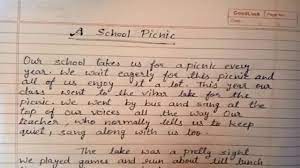 GoodLuck
Page No.
Date
A School Picnic
Our school takes us for a picnic every
year. We wait eagerly for this picnic and
all of us enjoy it a lot. This year our
class went to the Vihar lake for the
picnic. We went by bus and sang at the
top of our voices all the way. Our
teacher, who normally tells us to keep
quiet, sang along with us too.
The lake was a pretty sight
we played games and run about till lunch